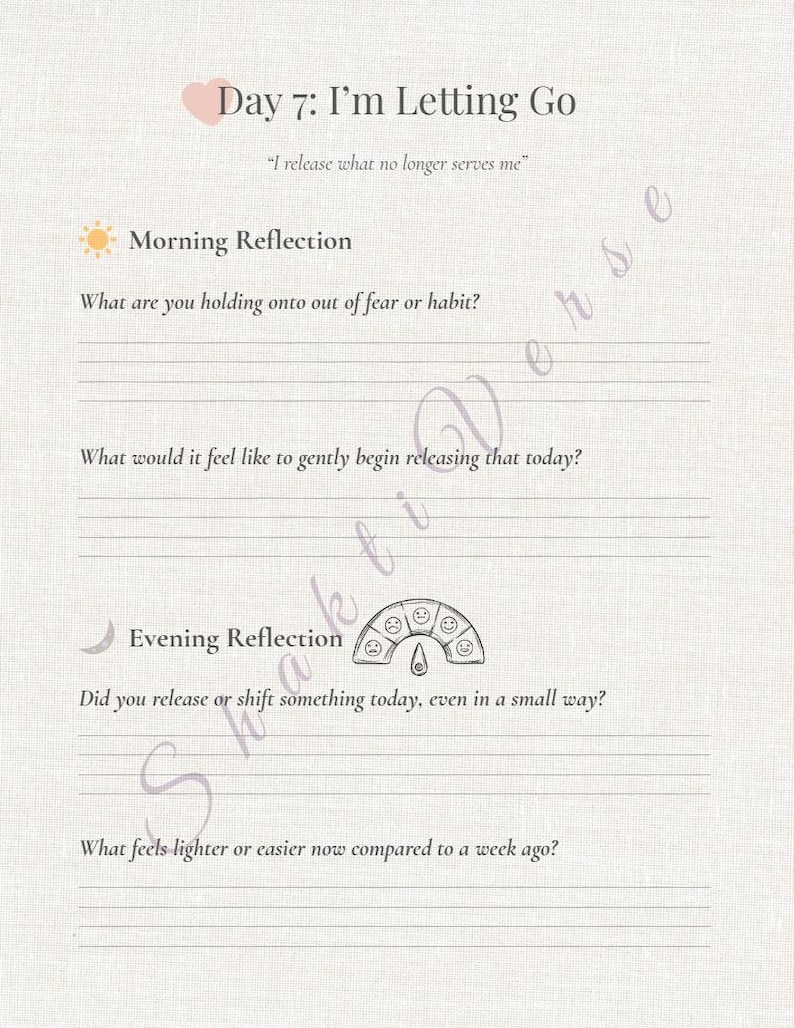 Day 7: I’m Letting Go
“I release what no longer serves me”
Morning Reflection
What are you holding onto out of fear or habit?
What would it feel like to gently begin releasing that today?
Evening Reflection
Did you release or shift something today, even in a small way?
What feels lighter or easier now compared to a week ago?
ShaktiVerse